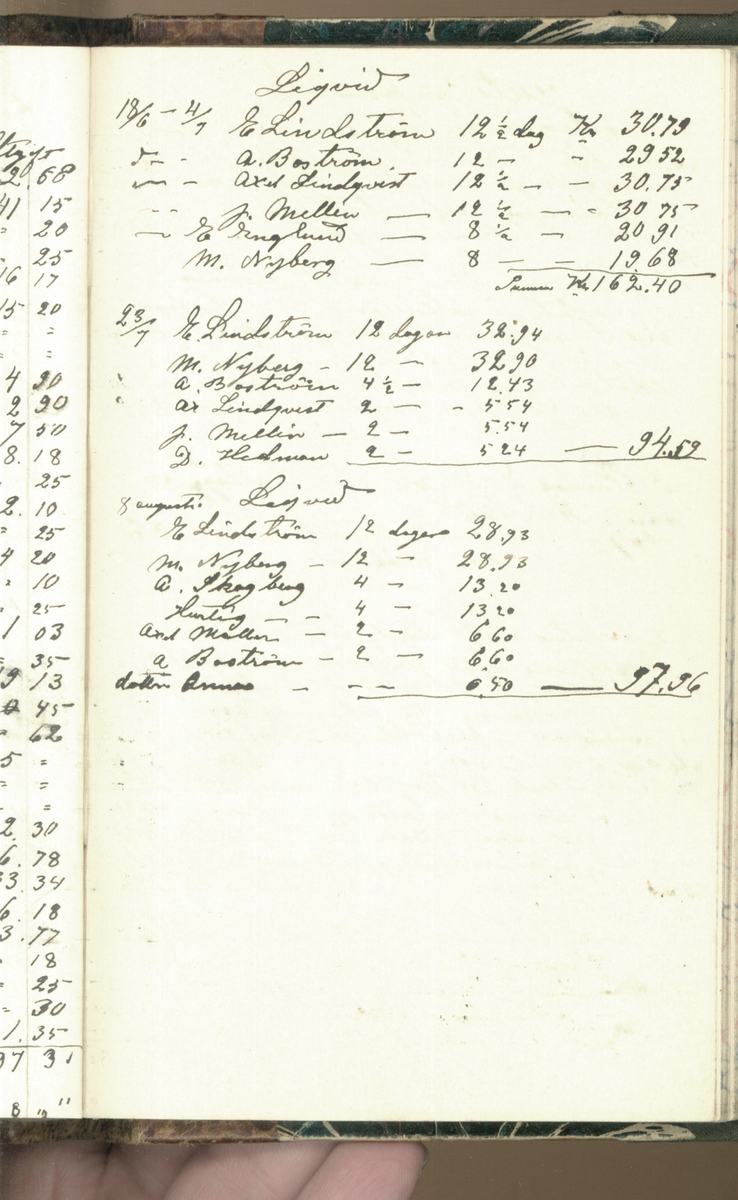 Liqvid
18/6 — 4/7 E Lindström 12 ½ dag Kr 30.79
do - - A. Boström 12 — " 29 52
— - Axel Lindqvist 12 ½ — - 30.75
- - J. Mellin — 12 ½ — " 30 75
— E Englund — 8 ½ — 20 91
M. Nyberg — 8 - - 19 68
Summa Kr. 162.40
23/7 E. Lindström 12 dagar 32.94
M. Nyberg - 12 — 32 90
A. Boström 4 ½ — 12.43
Ax Lindqvist 2 — - 5 54
J. Mellin — 2 — 5.54
D. Hedman 2 - 5 24 — 94.59
8 augusti. Liqvid
E Lindström 12 dagar 28,93
M. Nyberg - 12 — 28.93
A. Skogberg 4 — 13.20
Hurtig - - 4 — 13 20
Axel Mellin — 2 — 6 60
A Boström — 2 — 6 60
Anna - - - 0.50 — 97.96
2.68
41 15
" 20
25
16 17
15 20
" "
" "
4 90
2 90
7 50
8.18
25
2.10
" 25
4 20
" 10
25
1 03
" 35
9 13
45
62
5 "
" "
- "
2.30
6.78
33.34
6.18
3.77
18
" 25
" 30
1.35
97 31